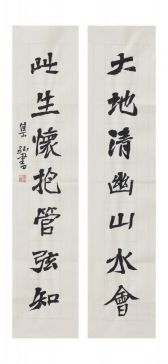 大地清幽山水會
此生懷抱管弦知